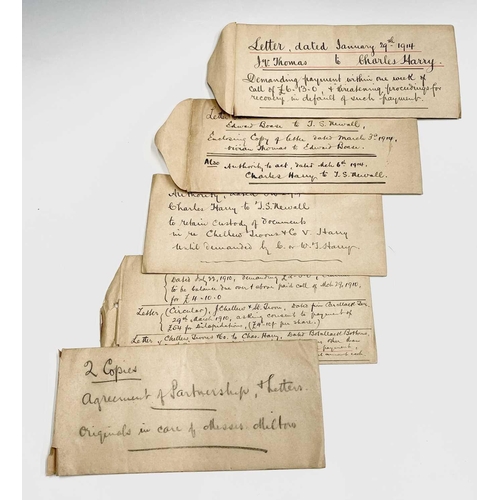 Letter, dated January 29th 1914
J.V. Thomas to Charles Harry.
Demanding payment within one week of
call of £6-13-0, & threatening proceedings for
recovery in default of such payment.
Edward Boase to T.S. Newall,
Enclosing Copy of letter dated March 3rd 1914,
Thomas to Edward Boase.
Also
Authority to act, dated 6th 1914,
Charles Harry to T.S. Newall.
Charles Harry to T.S. Newall
to retain custody of Documents
in re Chellew Irons & Co V. Harry
Until demanded by C. or W.J. Harry
Dated July 23, 1910, demanding
to be balance due over & above paid call of 29, 1910,
for £4-10-0
Letter, (Circular),
29th March 1910, asking consent to payment of
£64 for Dilapidations, per share.)
Letter, Chellew Irons & Co. to Chas. Harry, Dated Botallack
2 Copies
Agreement of Partnership, & Letters.
Originals in care of Messrs Milton